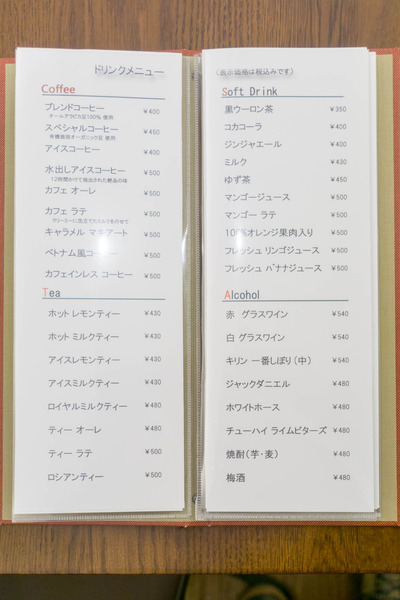 ドリンクメニュー
Coffee
ブレンドコーヒー ￥400
オールアラビカ豆100% 使用
スペシャルコーヒー ￥450
有機栽培オーガニック豆 使用
アイスコーヒー ￥400
水出しアイスコーヒー ￥500
12時間かけて抽出された絶品の味
カフェ オーレ ￥500
カフェ ラテ ￥500
クリーミーに泡立てたミルクを付せて
キャラメル マキアート ￥500
ベトナム風コーヒー ￥500
カフェインレス コーヒー ￥500
Tea
ホット レモンティー ￥430
ホット ミルクティー ￥430
アイスレモンティー ￥430
アイスミルクティー ￥430
ロイヤルミルクティー ￥480
ティー オーレ ￥480
ティー ラテ ￥500
ロシアンティー ￥500
(表示価格は税込みです)
Soft Drink
黒ウーロン茶 ￥350
コカコーラ ￥400
ジンジャエール ￥400
ミルク ￥430
ゆず茶 ￥450
マンゴージュース ￥500
マンゴー ラテ ￥500
100%オレンジ果肉入り ￥500
フレッシュ リンゴジュース ￥500
フレッシュ バナナジュース ￥500
Alcohol
赤 グラスワイン ￥540
白 グラスワイン ￥540
キリン 一番しぼり(中) ￥540
ジャックダニエル ￥480
ホワイトホース ￥480
チューハイ ライムビターズ ￥480
焼酎(芋・麦) ￥480
梅酒 ￥480